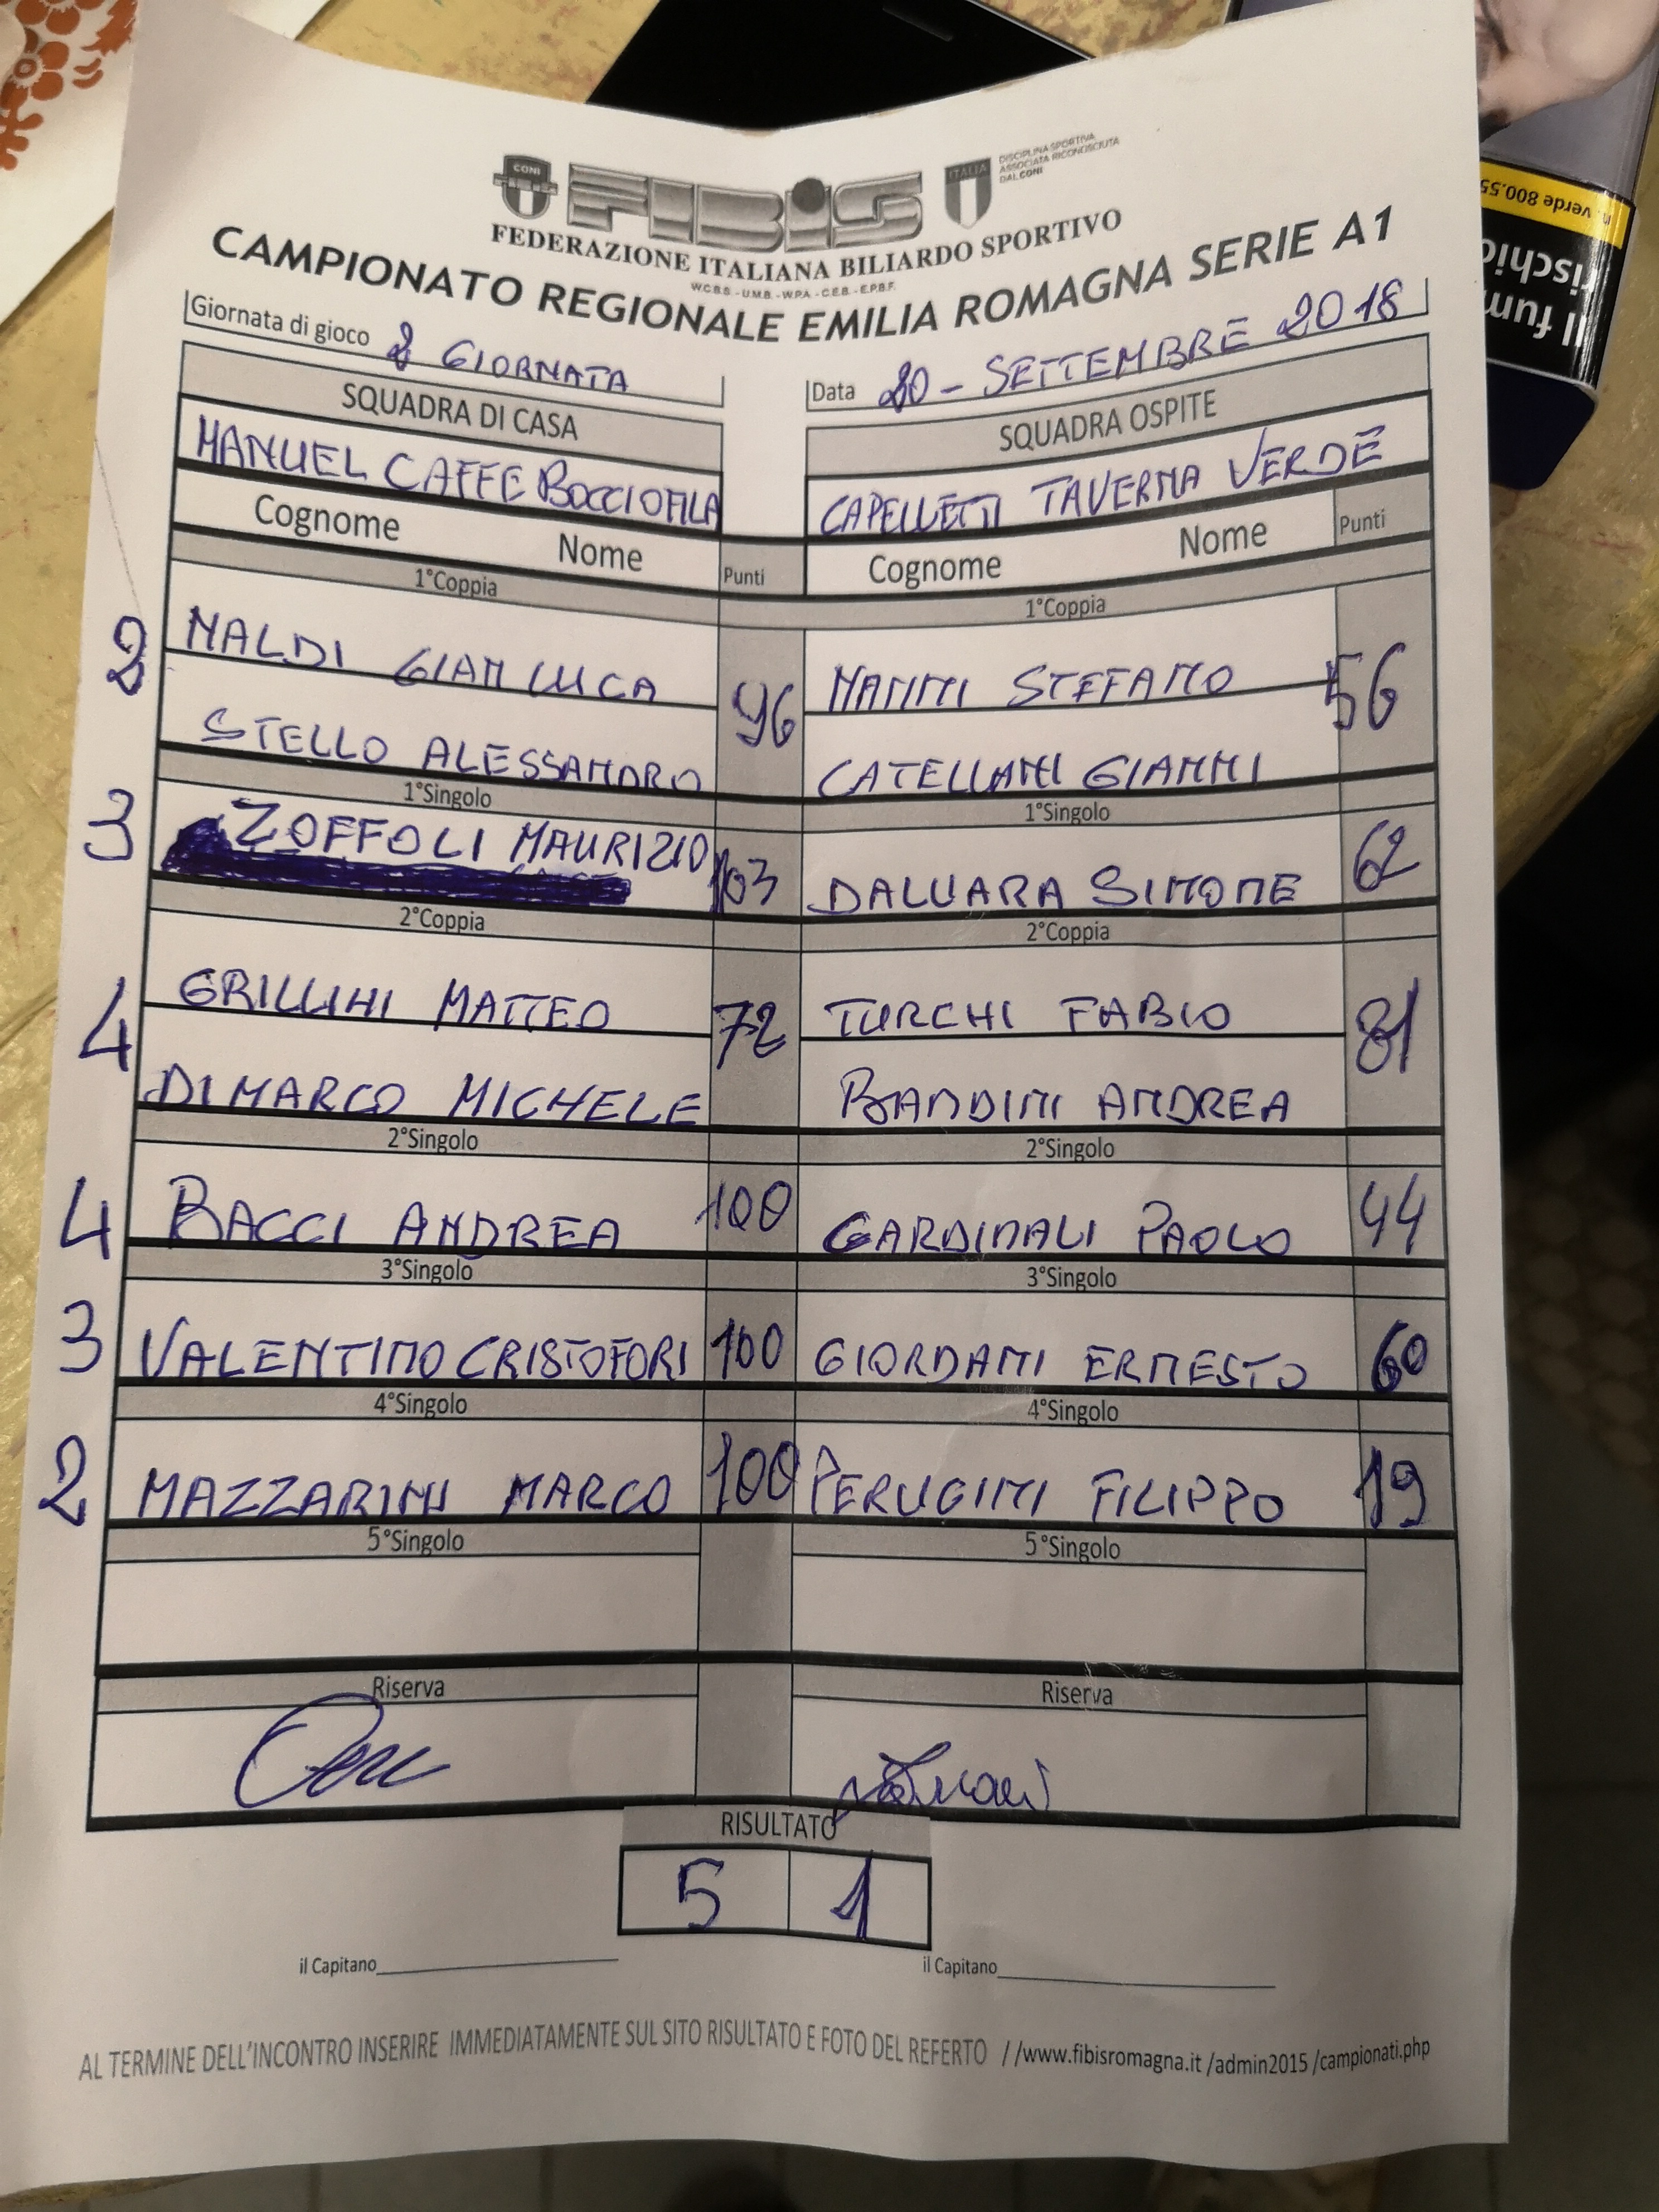 CONI
FIBIS
ITALIA
DISCIPLINA SPORTIVA
ASSOCIATA RICONOSCIUTA
DAL CONI
FEDERAZIONE ITALIANA BILIARDO SPORTIVO
W.C.B.S. - U.M.B. - W.P.A. - C.E.B. - E.P.B.F.
CAMPIONATO REGIONALE EMILIA ROMAGNA SERIE A1
Giornata di gioco 2 GIORNATA
Data 20 - SETTEMBRE 2018
SQUADRA DI CASA SQUADRA OSPITE
MANUEL CAFFE BOCCIOFILA CAPELLETTI TAVERNA VERDE
Cognome Nome Punti Cognome Nome Punti
1°Coppia 1°Coppia
2 NALDI GIANLUCA 96 NANNI STEFANO 56
STELLO ALESSANDRO CATELLANI GIANNI
1°Singolo 1°Singolo
3 ZOFFOLI MAURIZIO 103 DALLARA SIMONE 62
2°Coppia 2°Coppia
4 GRILLINI MATTEO 72 TURCHI FABIO 81
DI MARCO MICHELE BANDINI ANDREA
2°Singolo 2°Singolo
4 BACCI ANDREA 100 CARDINALI PAOLO 44
3°Singolo 3°Singolo
3 VALENTINO CRISTOFORI 100 GIORDANI ERNESTO 60
4°Singolo 4°Singolo
2 MAZZARINI MARCO 100 PERUGINI FILIPPO 19
5°Singolo 5°Singolo
Riserva Riserva
RISULTATO
5 1
il Capitano il Capitano
AL TERMINE DELL'INCONTRO INSERIRE IMMEDIATAMENTE SUL SITO RISULTATO E FOTO DEL REFERTO //www.fibisromagna.it /admin2015 /campionati.php
verde 800.55
Il fum
rischio